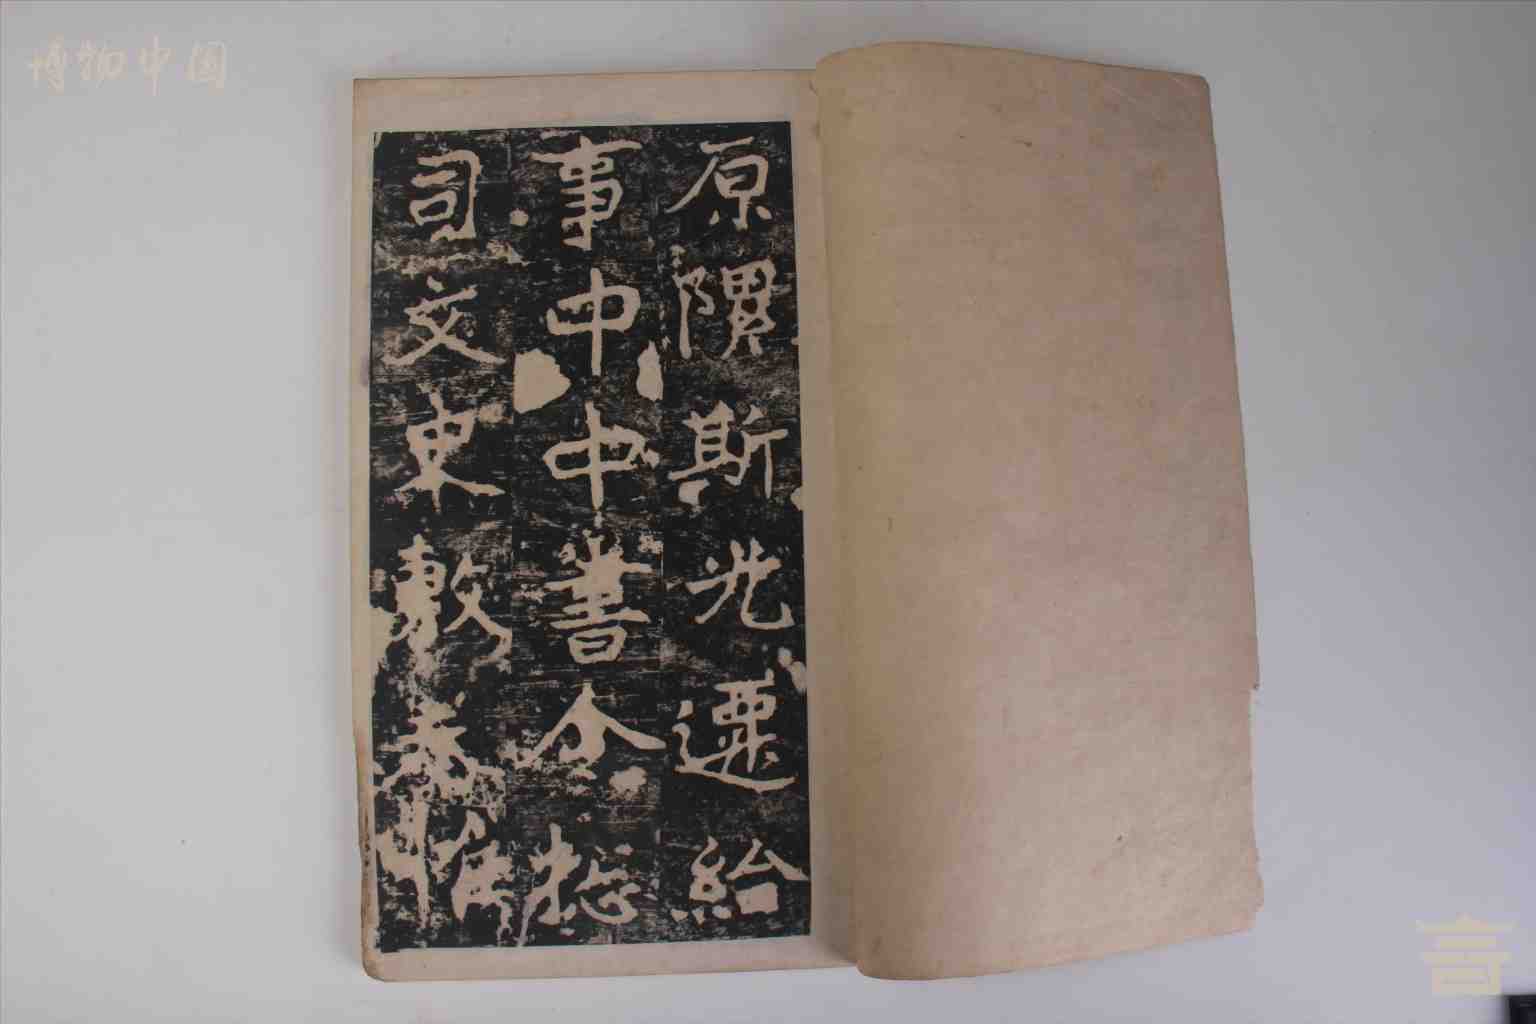 博物中国
原隰斯光遷給
事中中書令揔
司文史敷奏惟